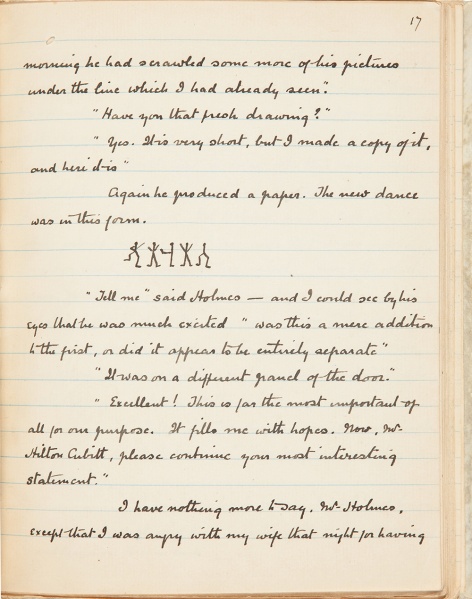 17
morning he had scrawled some more of his pictures
under the line which I had already seen".
"Have you that fresh drawing?"
"Yes. It is very short, but I made a copy of it,
and here it is"
Again he produced a paper. The new dance
was in this form.
"Tell me" said Holmes — and I could see by his
eyes that he was much excited "was this a mere addition
to the first, or did it appear to be entirely separate"
"It was on a different panel of the door."
"Excellent! This is far the most important of
all for our purpose. It fills me with hopes. Now, Mr
Hilton Cubitt, please continue your most interesting
statement."
I have nothing more to say, Mr Holmes,
except that I was angry with my wife that night for having